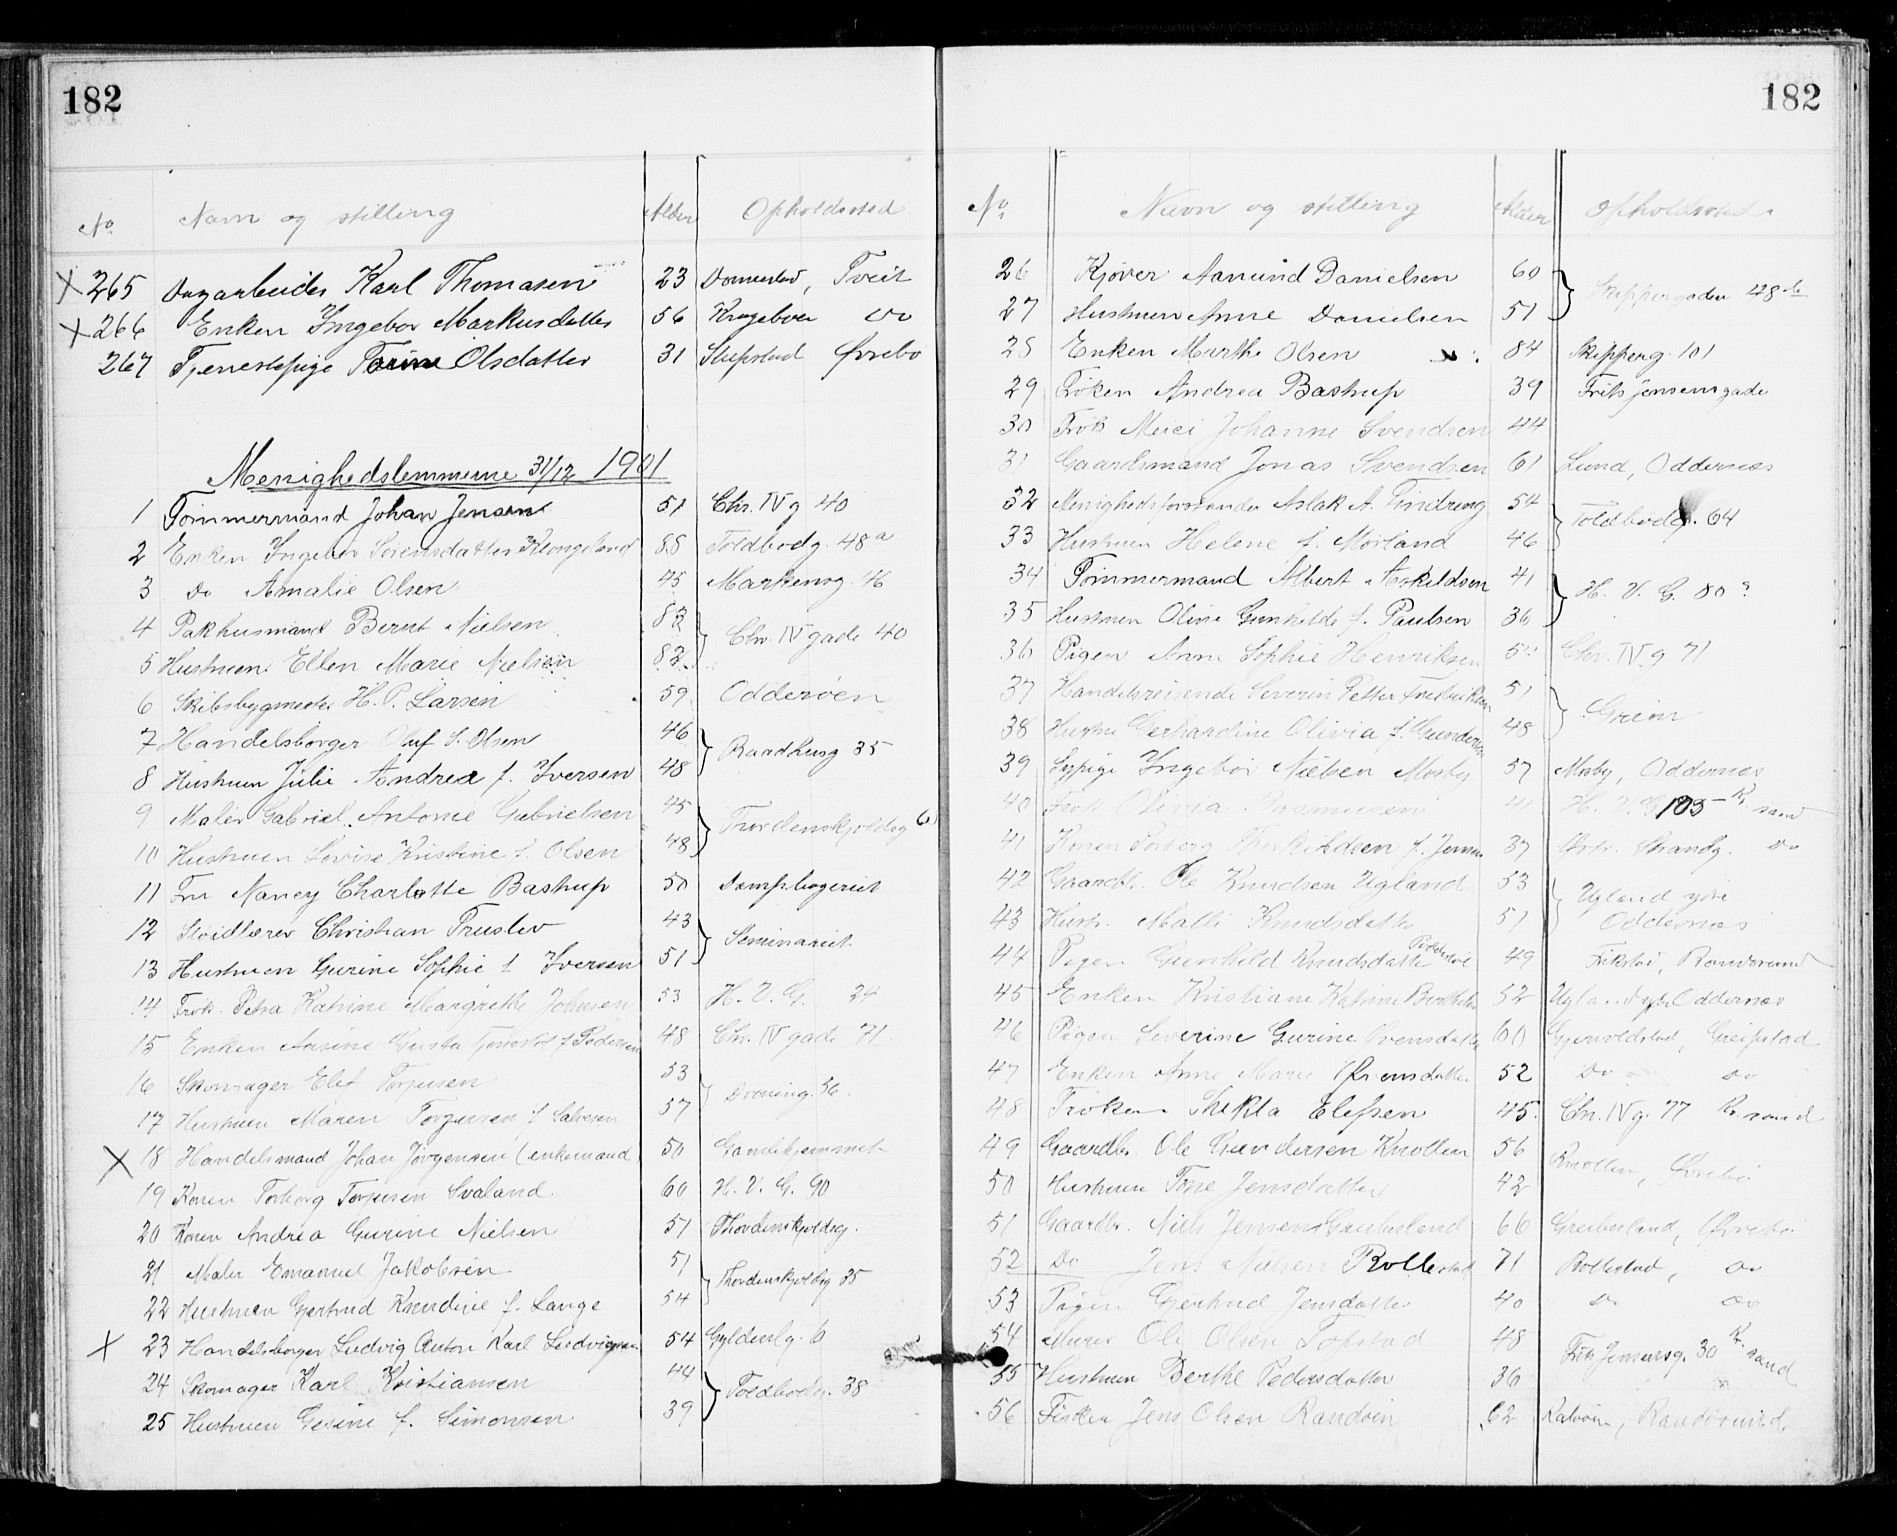 182
No Navn og stilling Alder Opholdssted
265 Dagarbeider Karl Thomasen 23 Tveit
266 Enken Ingebor Markusdatter 56 Do
267 Tjenestepige Torine Olsdatter 31 Stupstad Øvrebø
Menighedslemmerne 31/12 1901
1 Tømmermand Johan Jensen 51 Chr. IV g 40
2 Enken Ingebor Sørensdatter Klongeland 88 Toldbodg. 48a
3 Do Amalie Olsen 45 Markensg 46
4 Pakhusmand Bernt Nielsen 83 Chr. IV gade 40
5 Hustruen Ellen Marie Nielsen 82
6 Skibsbygmester H. P. Larsen 59 Odderøen
7 Handelsborger Oluf S. Olsen 46 Raadhusg 35
8 Hustruen Julie Andrea f. Iversen 48
9 Maler Gabriel Antonie Gabrielsen 45 Tordenskjoldsg 61
10 Hustruen Lovise Kristine f. Olsen 48
11 Fru Nancy Charlotte Bastrup 50 Dampbageriet
12 Sløidlærer Christian Truslev 43 Seminariet
13 Hustruen Gurine Sophie f. Iversen 51
14 Frøk. Petra Katrine Margrethe Johnsen 53 H. V. G. 24
15 Enken Ansine Gusta f. Pedersen 48 Chr. IV gade 71
16 Skomager Elef Torjusen 53 Droning. 56
17 Hustruen Maren Torjusen f. Salvesen 57
18 Handelsmand Johan Jørgensen (enkemand 50 Gamlehjemmet
19 Konen Torborg Torjusen Svaland 60 H. V. G. 90
20 Konen Andrea Gurine Nielsen 51 Thordenskjoldsg.
21 Maler Emanuel Jakobsen 51 Thordenskjoldsg 35
22 Hustruen Gjertrud Knudine f. Lange 54
23 Handelsborger Ludvig Anton Karl Ludvigsen 54 Gyldenlg. 6
24 Skomager Karl Kristiansen 44 Toldbodg. 38
25 Hustruen Gesine f. Simonsen 39
182
No Navn og stilling Alder Opholdssted
26 Kjøver Aanund Danielsen 60 Skippergaden 48
27 Hustruen Anne Danielsen 51
28 Enken Marthe Olsen 84 Skipperg. 101
29 Frøken Andrea Bastrup 39 Frits Jensensgade
30 Frøk Meici Johanne Svendsen 44
31 Gaardsmand Jonas Svendsen 61 Lund, Oddernæs
32 Menighedsforstander Aslak A. Tindreng 54 Toldbodg. 64
33 Hustruen Helene f. Mørland 46
34 Tømmermand Albert Askildsen 41 H. V. G. 80
35 Hustruen Oline Gunhilde f. Paulsen 36
36 Pigen Anne Sophie Henriksen Chr. IV g 71
37 Handelsreisende Severin Petter Fredriksen 51 Grim
38 Hustru Gerhardine Olivia f. Gundersen 48
39 Sypige Ingebor Nielsen Mosby 57 Mosby, Oddernæs
40 Frøk Olivia Rasmussen 41 H. V. G 103 Kr. sand
41 Konen Torberg Thorkildsen f. Jensen 37 Østr. Strandg. Do
42 Gaardb. Ole Knudsen Ugland 53 Ugland ytre Oddernæs
43 Hustr. Malli Knudsdatter 51
44 Pigen Gunhild Knudsdatter 49 Randøsund
45 Enken Kristiane Katrine 52 Ugland ytr Oddernæs
46 Pigen Severine Gurine 60 Greipstad
47 Enken Anne Marie 52 Do Do
48 Frøken Thekla Elefsen 45. Chr. IV g. 77 Kr. sand
49 Gaardbr. Ole Gundersen Knollen 56 Knollen, Øvrebø
50 Hustruen Tone Jensdatter 42
51 Gaardbr. Niels Jensen Greibesland 66 Greibesland, Øvrebø
52 Do Jens Nielsen Rollestad 71 Rollestad, Do
53 Pigen Gjertrud Jensdatter 40 Do Do
54 Murer Ole Olsen 48 Frits Jensensg. 30 Kr. sand
55 Hustruen Berthe Pedersdatter 36
56 Fisker Jens Olsen Randøen 62 Randøsund.